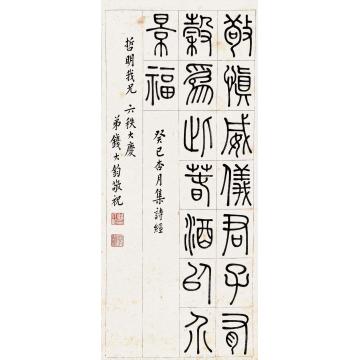 敬慎威儀君子有
穀爲此春酒以介
景福
癸巳杏月集詩經
哲明我兄 六秩大慶
弟錢大鈞敬祝